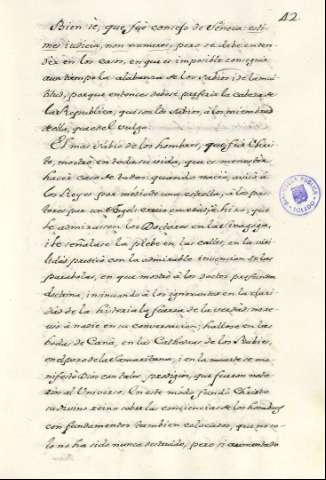 42
Bien sè, que fuè consejo de Seneca: esti-
mes iudicia, non numeres, pero se debe enten-
der en los casos, en que es imposible conseguir
aun tiempo la alabanza de los Sabios, i de la mul-
titud, porque entonces deberè preferir la cabeza de
la Republica, que son los Sabios, à los miembros
de ella, que es el vulgo.
El mas Sabio de los hombres, que fuè Chris-
to, mostrò en toda su vida, que es menester
hacer caso de todos: quando naciò, avisò à
los Reyes por medio de una estrella, à los pas-
tores por un Angel: creciò en edad, i hizo, que
le admirassen los Doctores en la Sinagoga,
i le señalase la plebe en las calles, en la
predicò con la admirable invencion de las
parabolas, en que mostrò à los doctos profunda
doctrina, insinuando à los ignorantes en la clari-
dad de la historia la fuerza de la verdad: no se
à nadie en su conversacion; hallose en las
bodas de Canà, en las Cathedras de los Rabies,
en el pozo de la Samaritana; i en la muerte se ma-
nifestò Dios con tales prodigios, que fueron noto-
rios al Universo. En este modo fundò Christo
su divino reino sobre las conciencias de los hombres
con fundamentos tan bien colocados, que no so-
lo no ha sido nunca destruido, pero si aumentado
BIBLIOTECA PUBLICA
TOLEDO